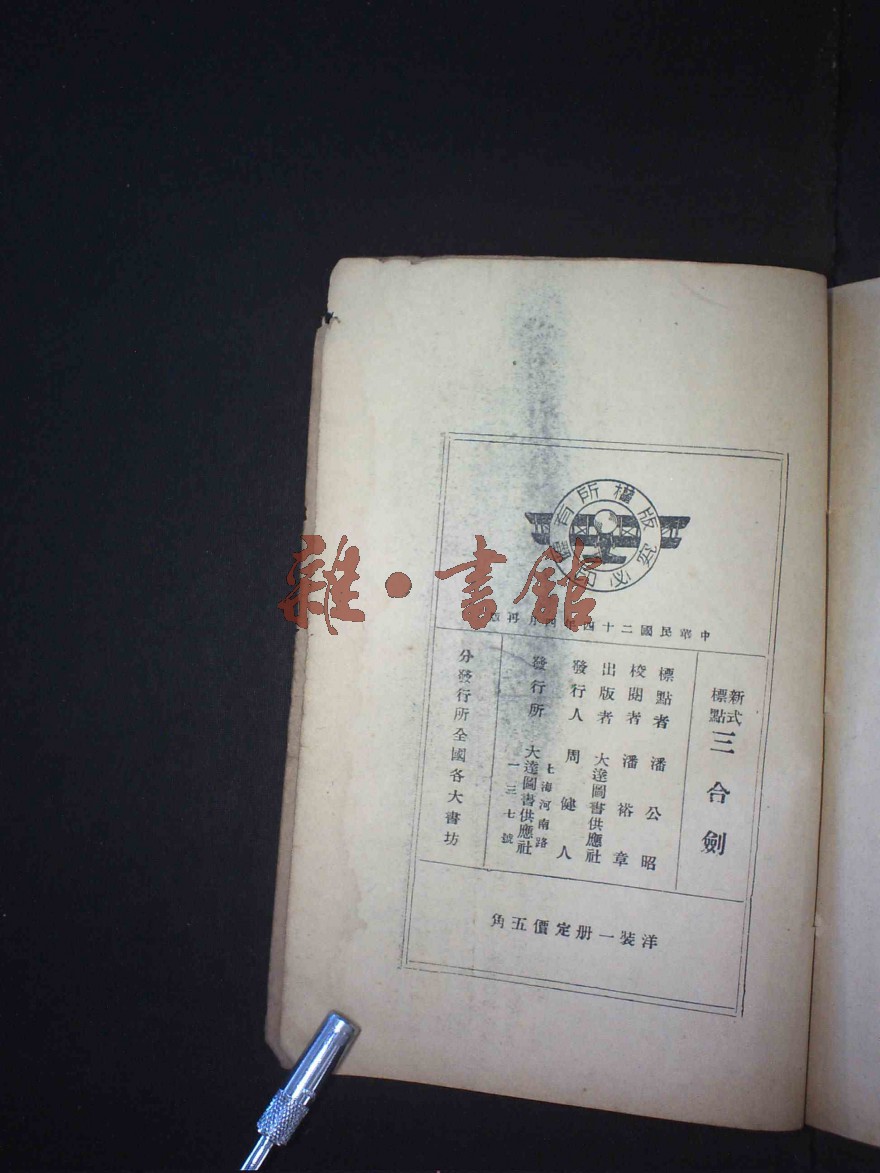 版權所有
翻印必究
雜·書館
中華民國二十四年四月再版
新式標點 三合劍
標點者 潘公昭
校閱者 潘裕章
出版者 大達圖書供應社
發行人 周健人
發行所 上海河南路一三七號 大達圖書供應社
分發行所全國各大書坊
洋裝一册定價五角